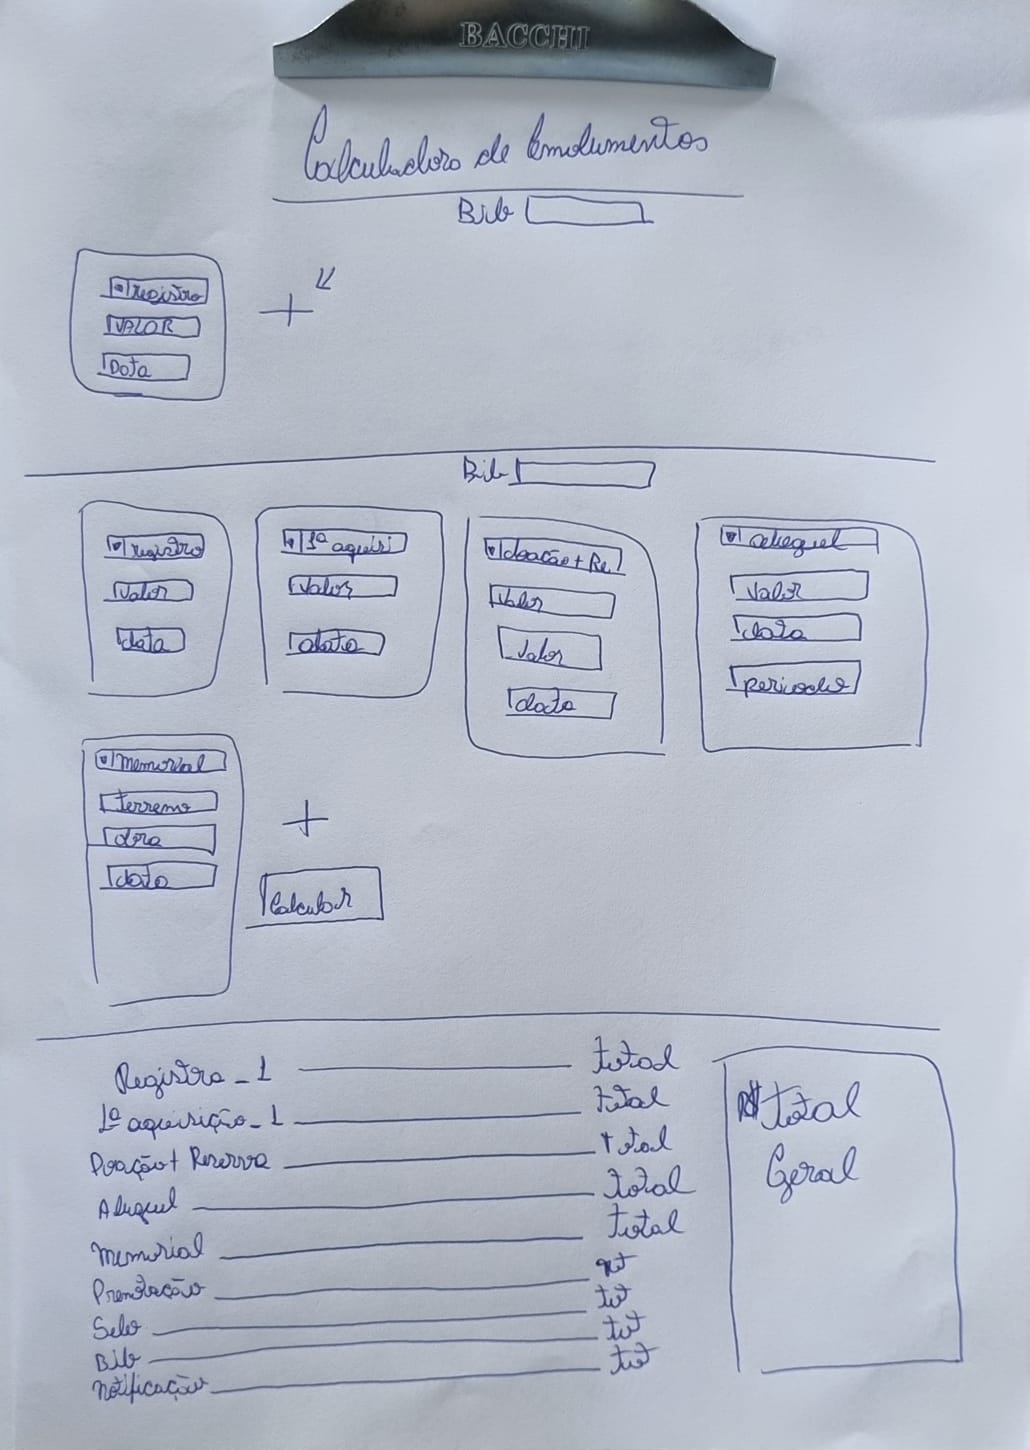 BACCHI
Calculadora de Emolumentos
Bib
registro
VALOR
Data
+
Bib
registro
valor
data
1ª aquisi
valor
data
doação + Re.
valor
valor
data
aluguel
valor
data
periodo
memorial
terreno
obra
data
+
Calcular
Registro - 1 total
1ª aquisição - 1 total
Doação + Reserva total
Aluguel total
memorial total
Prenotação
Selo tot
Bib tot
notificação tot
total
Geral